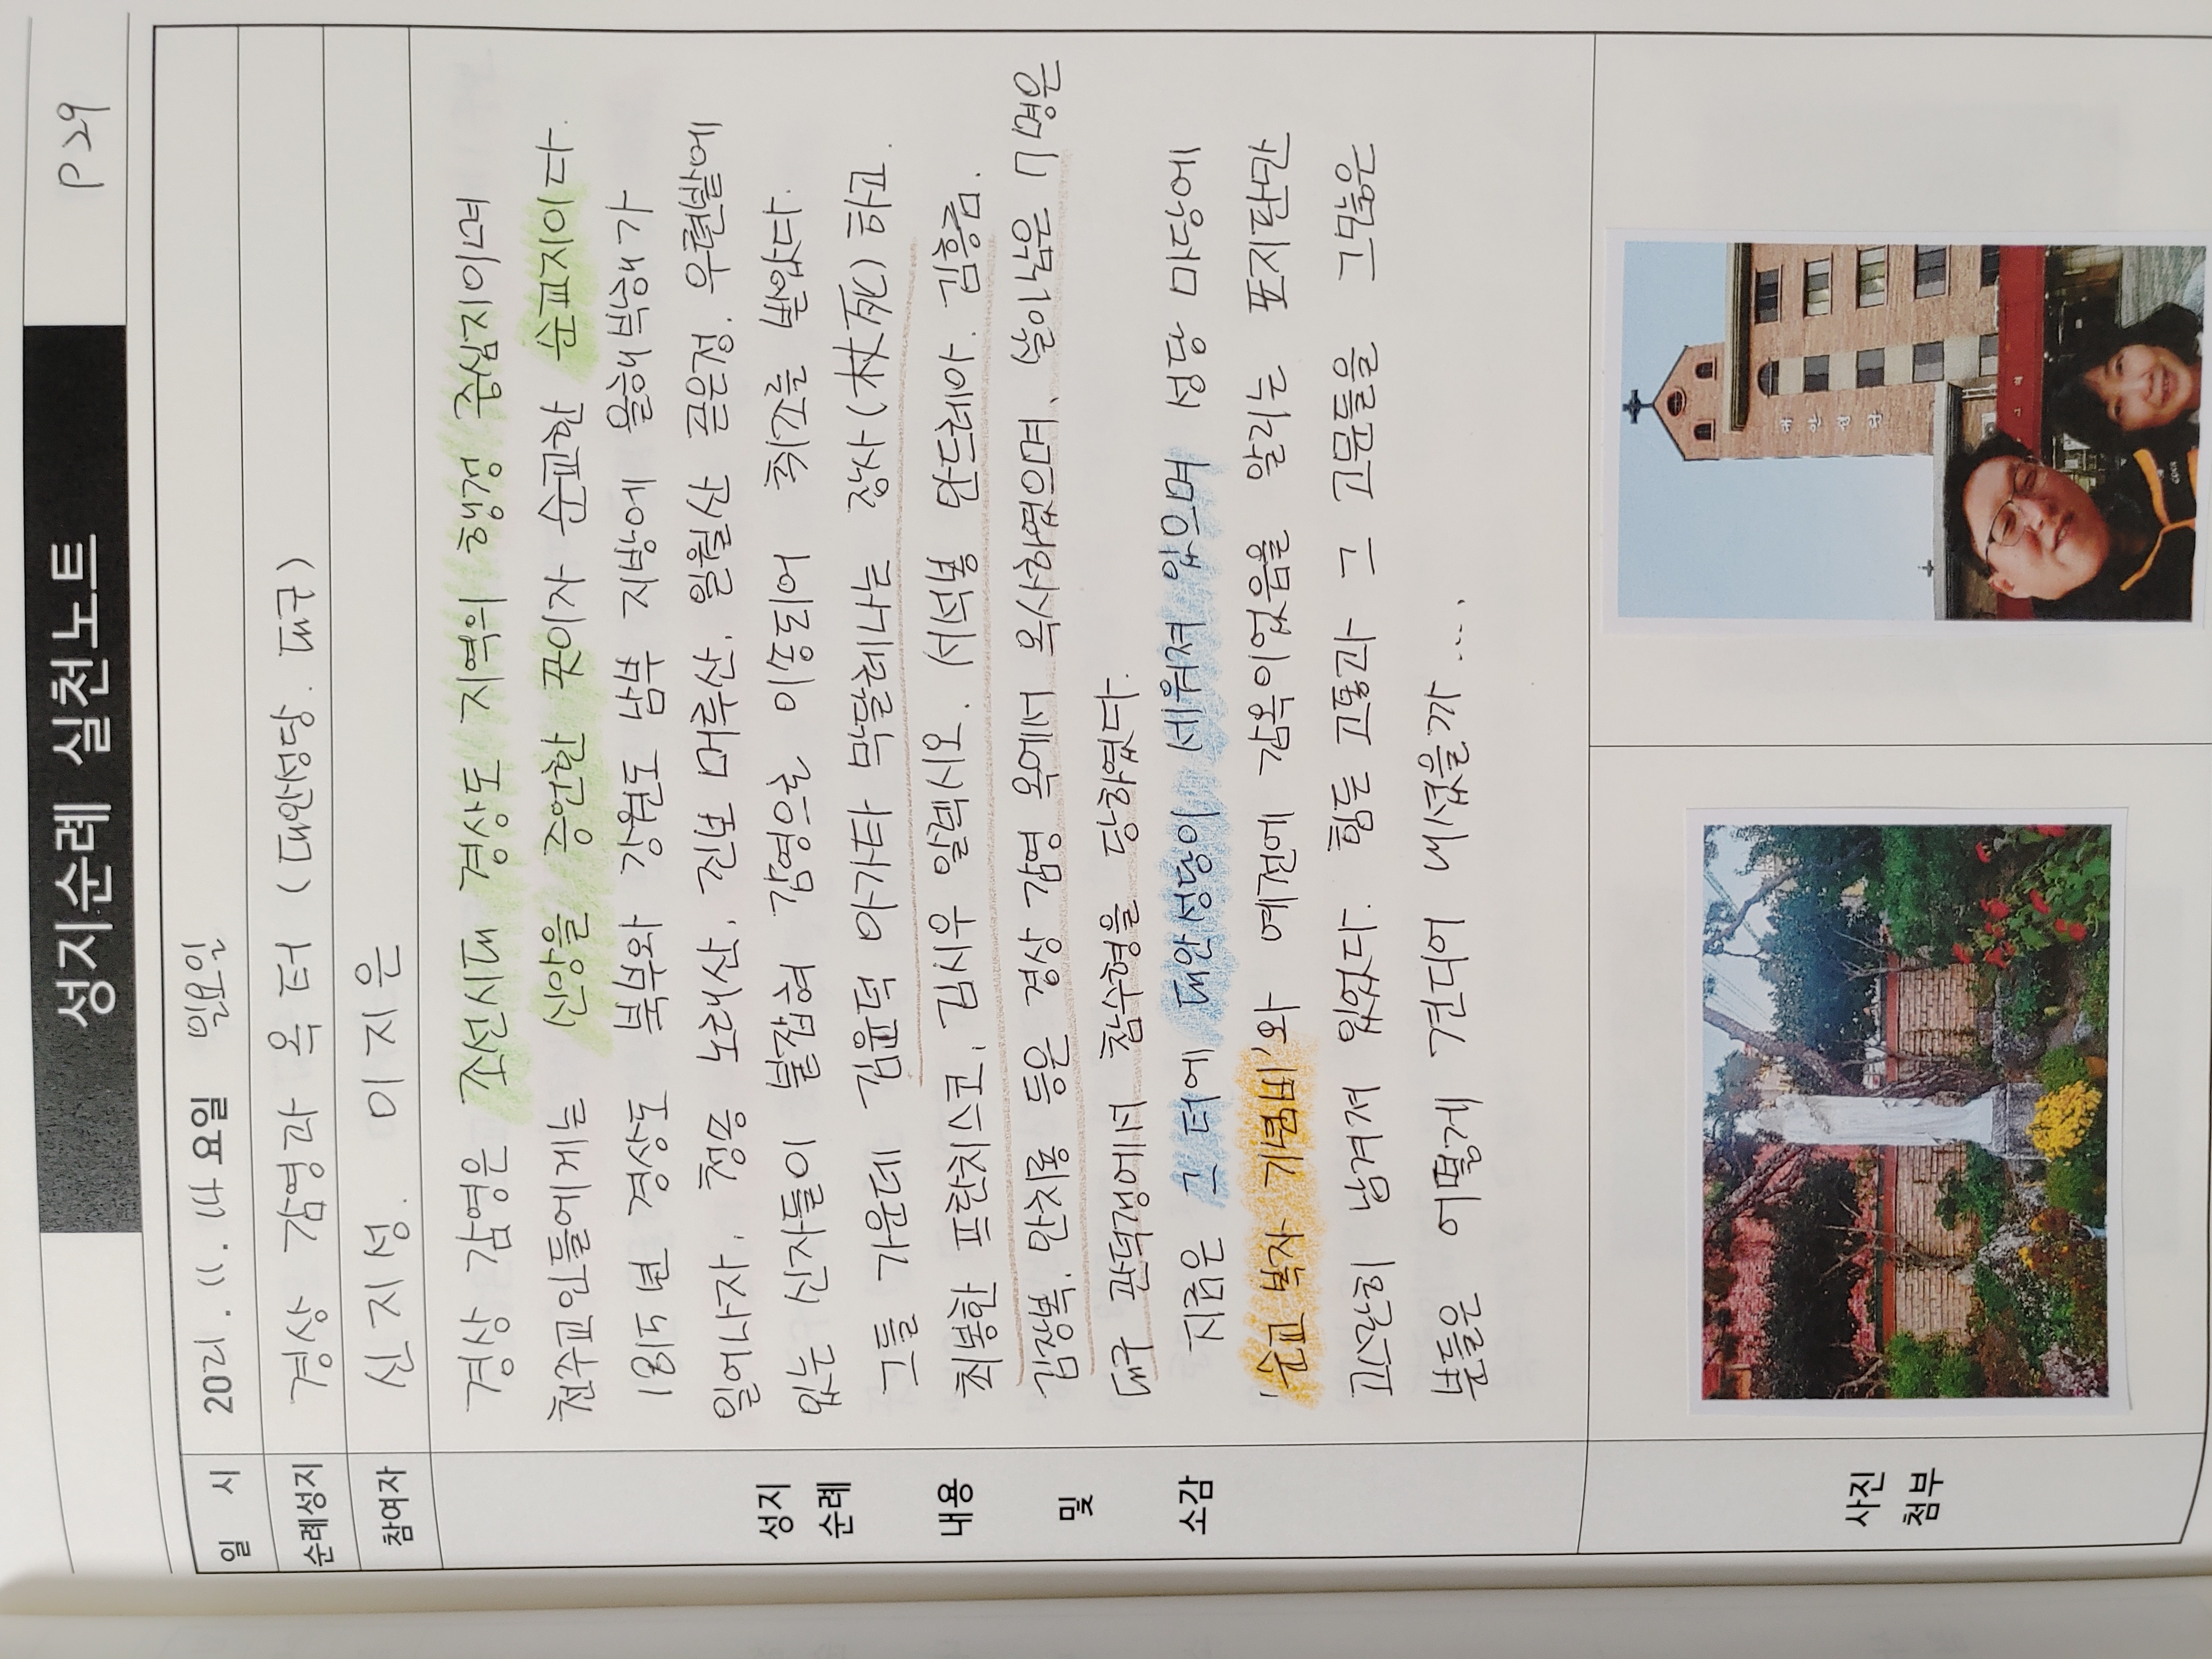 성지순례 실천노트
P 29
일 시 2021. 11. 14 요일 일요일
순례성지 경상 감영과 옥 터 (대안성당. 대구)
참여자 신지성. 이지은
성지
순례
내용
및
소감
경상 감영은 조선시대 경상도 지역의 행정 중심지이며
천주교인들에게는 신앙을 증언한 곳이자 순교한 순교지이다.
1815년 경상도 북부와 강원도 남부 지방에 을해박해가
일어나자, 청송 노래산, 진보 머루산, 일월산 곧은정. 우련밭에
있는 신자들이 붙잡혀 감영으로 이송되어 취조를 받았다.
그들 가운데 김윤덕 아가타 막달레나는 장사(杖死) 하고
최봉한 프란치스코, 김시우 알렉시오. (서석봉 안드레아. 김흥금.
김장복. 안치룡 등은 경상 감영 옥에서 옥사하였으며, 7명은
대구 관덕정에서 참수형을 당하였다.
지금은 그 터에 대안성당이 세워져 있으며 성당 마당에
'순교 복자 기념비'와 예전에 감옥이었음을 알리는 표지판만
고스란히 남겨져 있었다. 힘든 고통과 그 고문들을 그 많은
분들은 어떻게 견디어 내셨을까....
사진
첨부
대안성당